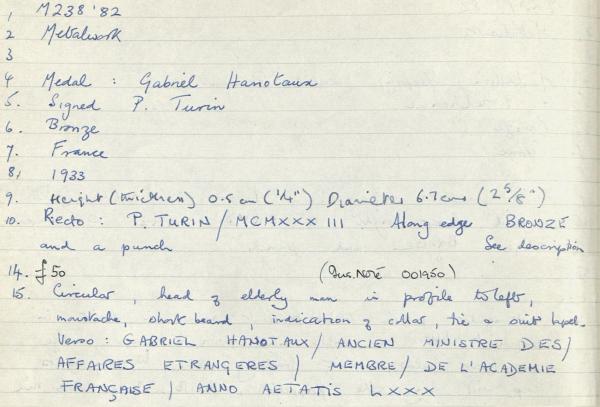 1 M238 '82
2 Metalwork
3
4 Medal : Gabriel Hanotaux
5. Signed P. Turin
6. Bronze
7. France
8, 1933
9. Height (thickness) 0.5 cm (1/4") Diameter 6.7 cms (2 5/8")
10. Recto : P. TURIN / MCMXXXIII Along edge BRONZE
and a punch See description
14. £50 (Ins. Note 001950)
15. Circular, head of elderly man in profile to left,
moustache, short beard, indication of collar, tie & suit lapel.
Verso : GABRIEL HANOTAUX / ANCIEN MINISTRE DES /
AFFAIRES ETRANGERES / MEMBRE / DE L'ACADEMIE
FRANÇAISE / ANNO AETATIS LXXX